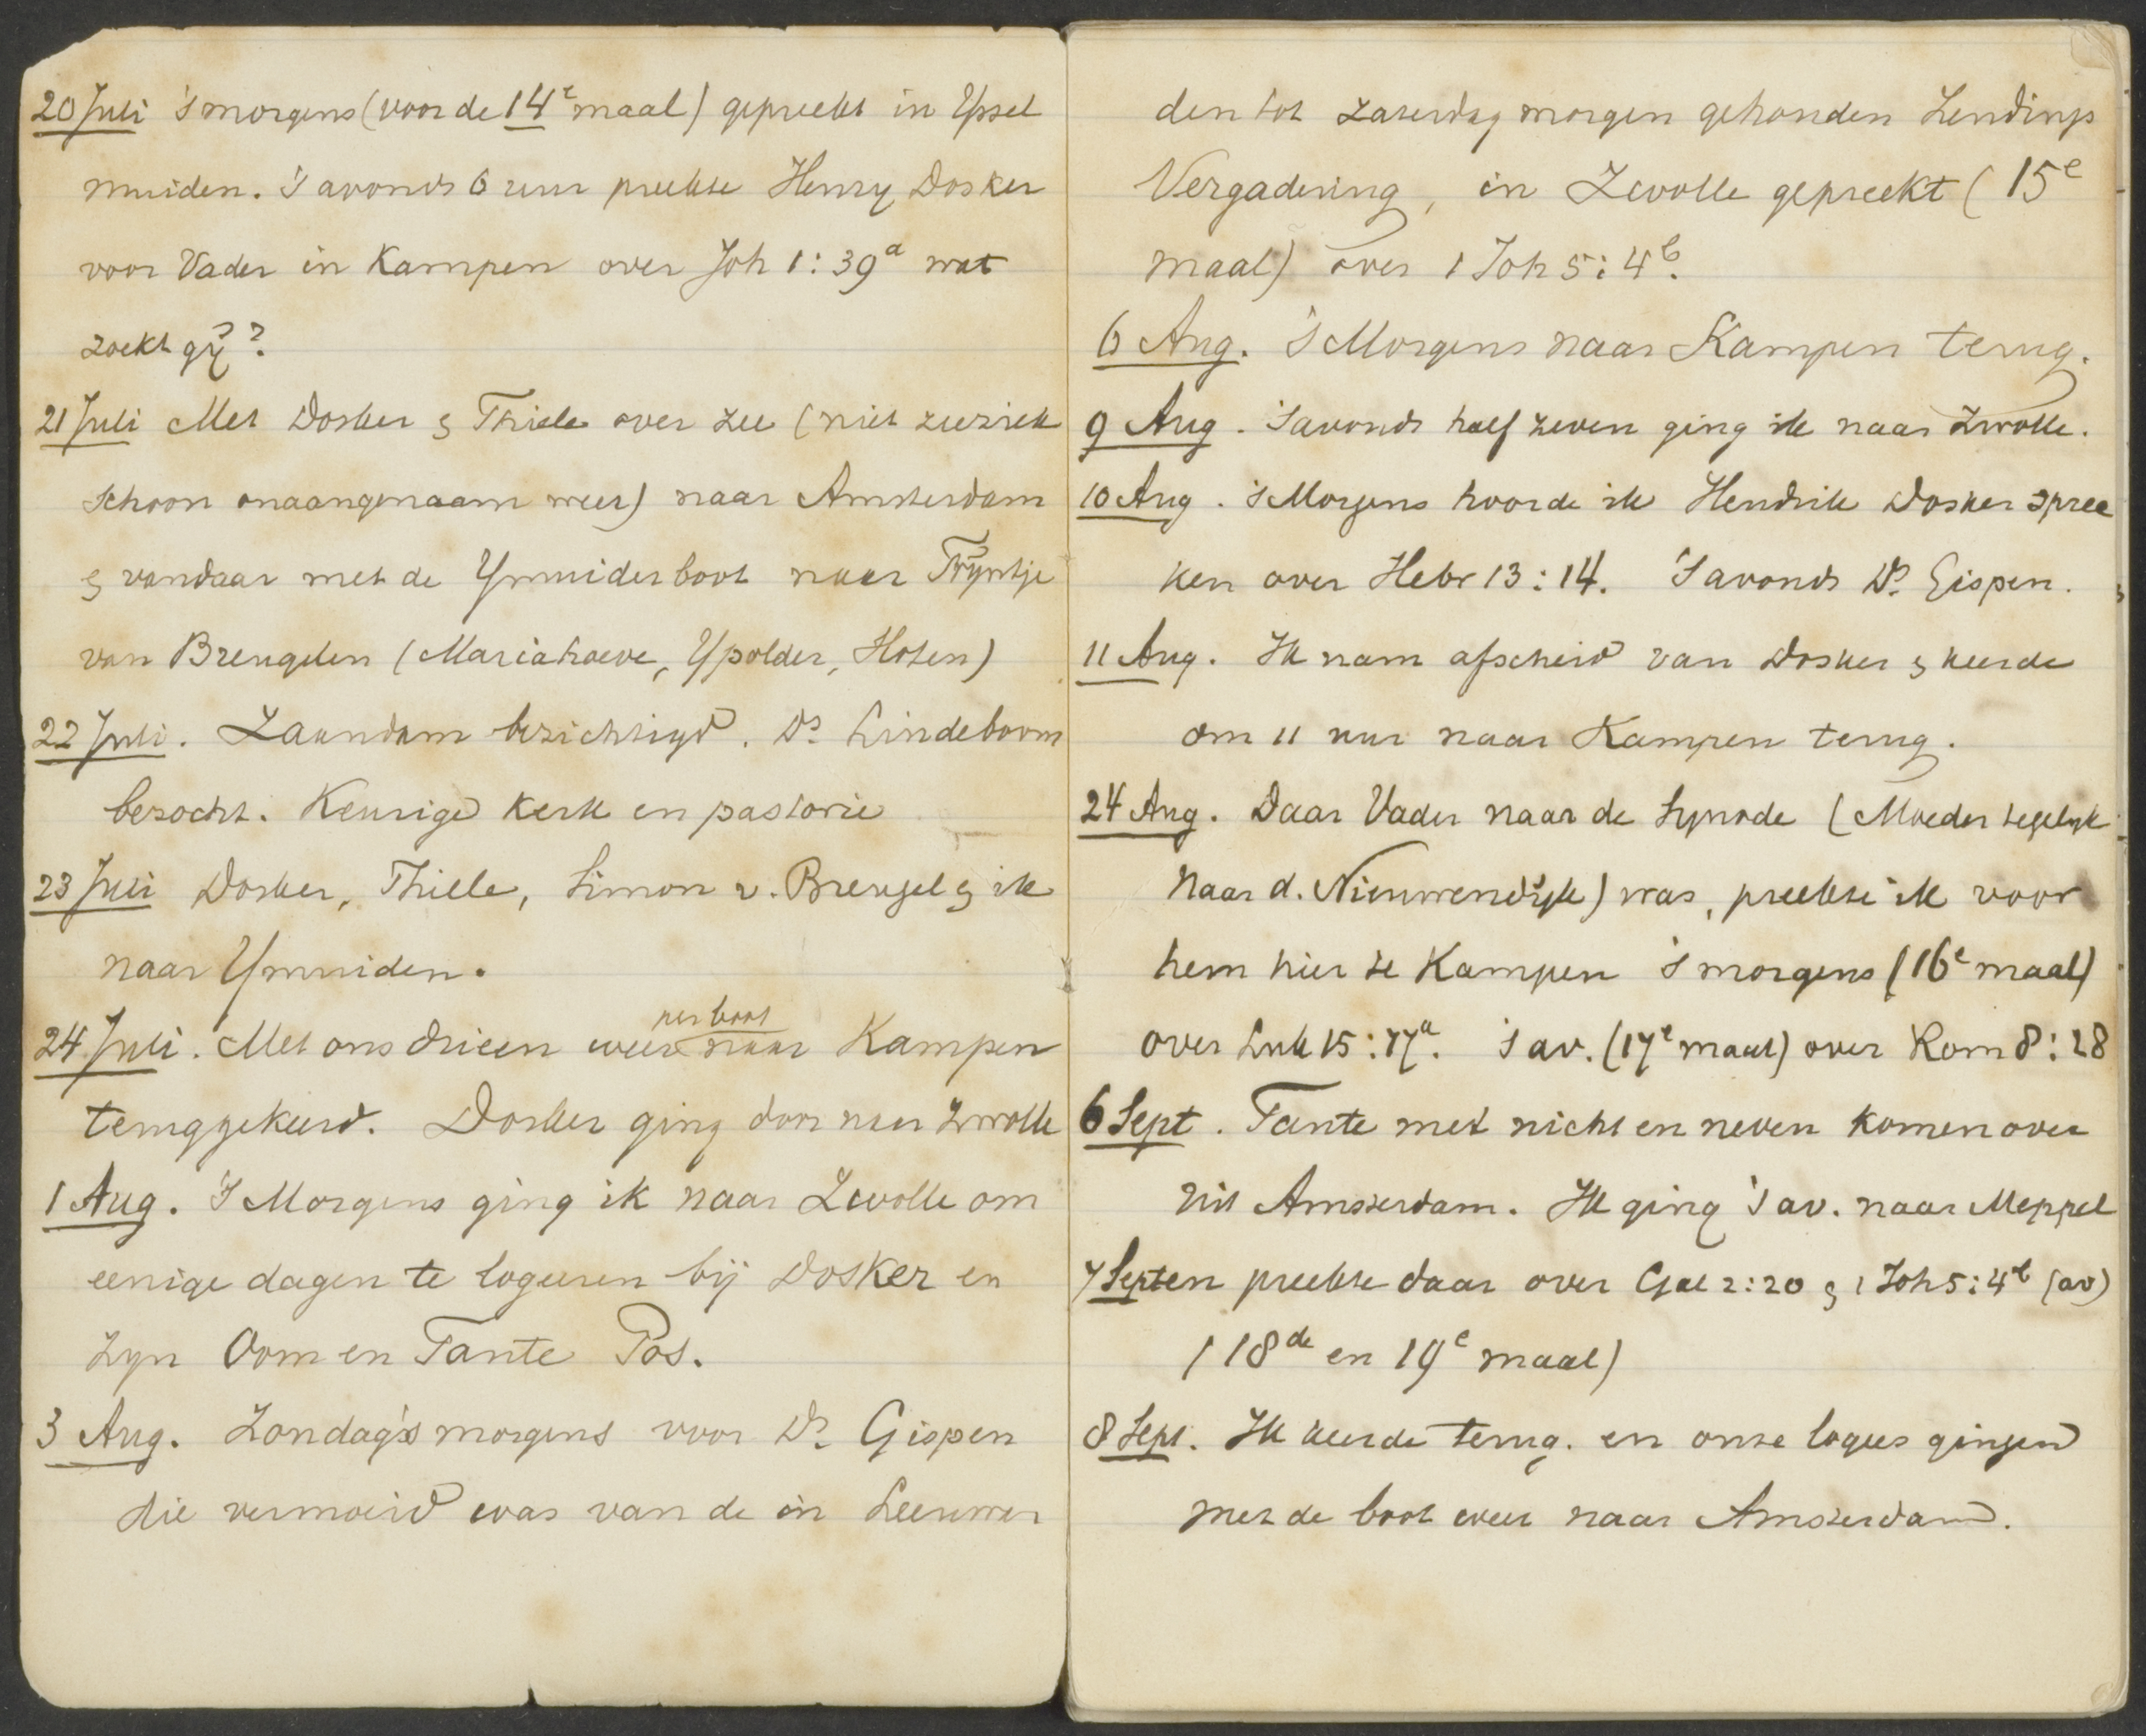 20 Juli 's morgens (voor de 14e maal) gepreekt in Yssel
muiden. 's avonds 6 uur preekte Henry Dosker
voor Vader in Kampen over Joh 1:39a wat
zoekt gij?
21 Juli Met Dosker & Thiele over zee (niet zeeziek
schoon onaangenaam weer) naar Amsterdam
& vandaar met de Ymuider boot naar Trijntje
van Brengelen (Mariahoeve, Ypolder, Hoten)
22 Juli. Zaandam bezichtigd. Ds. Lindeboom
bezocht. Keurige kerk en pastorie
23 Juli Dosker, Thiele, Simon v. Brengel & ik
naar Ymuiden.
per boot
24 Juli. Met ons drieen weer naar Kampen
teruggekeerd. Dosker ging door naar Zwolle
1 Aug. 's Morgens ging ik naar Zwolle om
eenige dagen te logeeren bij Dosker en
zyn Oom en Tante Pos.
3 Aug. Zondag's morgens voor Ds. Gispen
die vermoeid was van de in Leeuwar
den tot zaterdag morgen gehouden Zendings
Vergadering, in Zwolle gepreekt (15e
maal) over 1 Joh 5:4b.
6 Aug. 's Morgens naar Kampen terug.
9 Aug. 's avonds half zeven ging ik naar Zwolle.
10 Aug. 's Morgens hoorde ik Hendrik Dosker spree
ken over Hebr 13:14. 's avonds Ds. Gispen.
11 Aug. Ik nam afscheid van Dosker & keerde
om 11 uur naar Kampen terug.
24 Aug. Daar Vader naar de Synode (Moeder tegelyk
naar d. Nieuwendijk) was, preekte ik voor
hem hier te Kampen 's morgens (16e maal)
over Luk 15:17a. 's av. (17e maal) over Rom 8:28
6 Sept. Tante met nicht en neven komen over
uit Amsterdam. Ik ging 's av. naar Meppel
7 Sept en preekte daar over Gal 2:20 & 1 Joh 5:4b (av)
(18de en 19e maal)
8 Sept. Ik keerde terug. en onze logees gingen
met de boot weer naar Amsterdam.